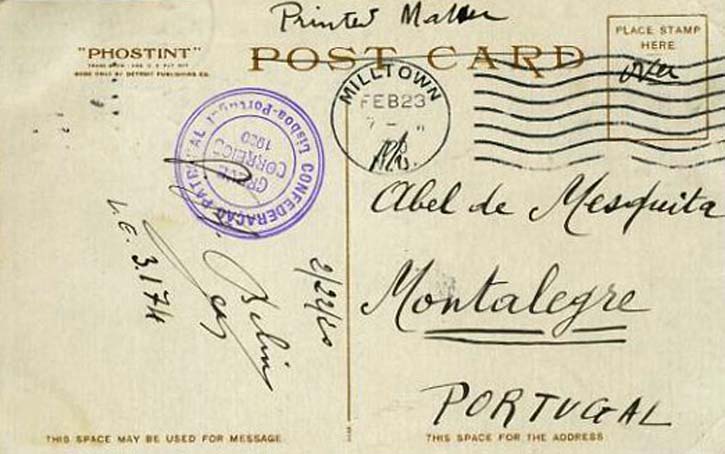 Printed Matter
"PHOSTINT"
MADE ONLY BY DETROIT PUBLISHING CO.
POST CARD
PLACE STAMP
HERE
over
MILLTOWN
FEB 23
CONFEDERAÇÃO PATRONAL
Lisboa-Portugal
GREVE
CORREIOS
1920
Abel de Mesquita
Montalegre
PORTUGAL
2/22/20
L.E. 3.174
THIS SPACE MAY BE USED FOR MESSAGE
THIS SPACE FOR THE ADDRESS